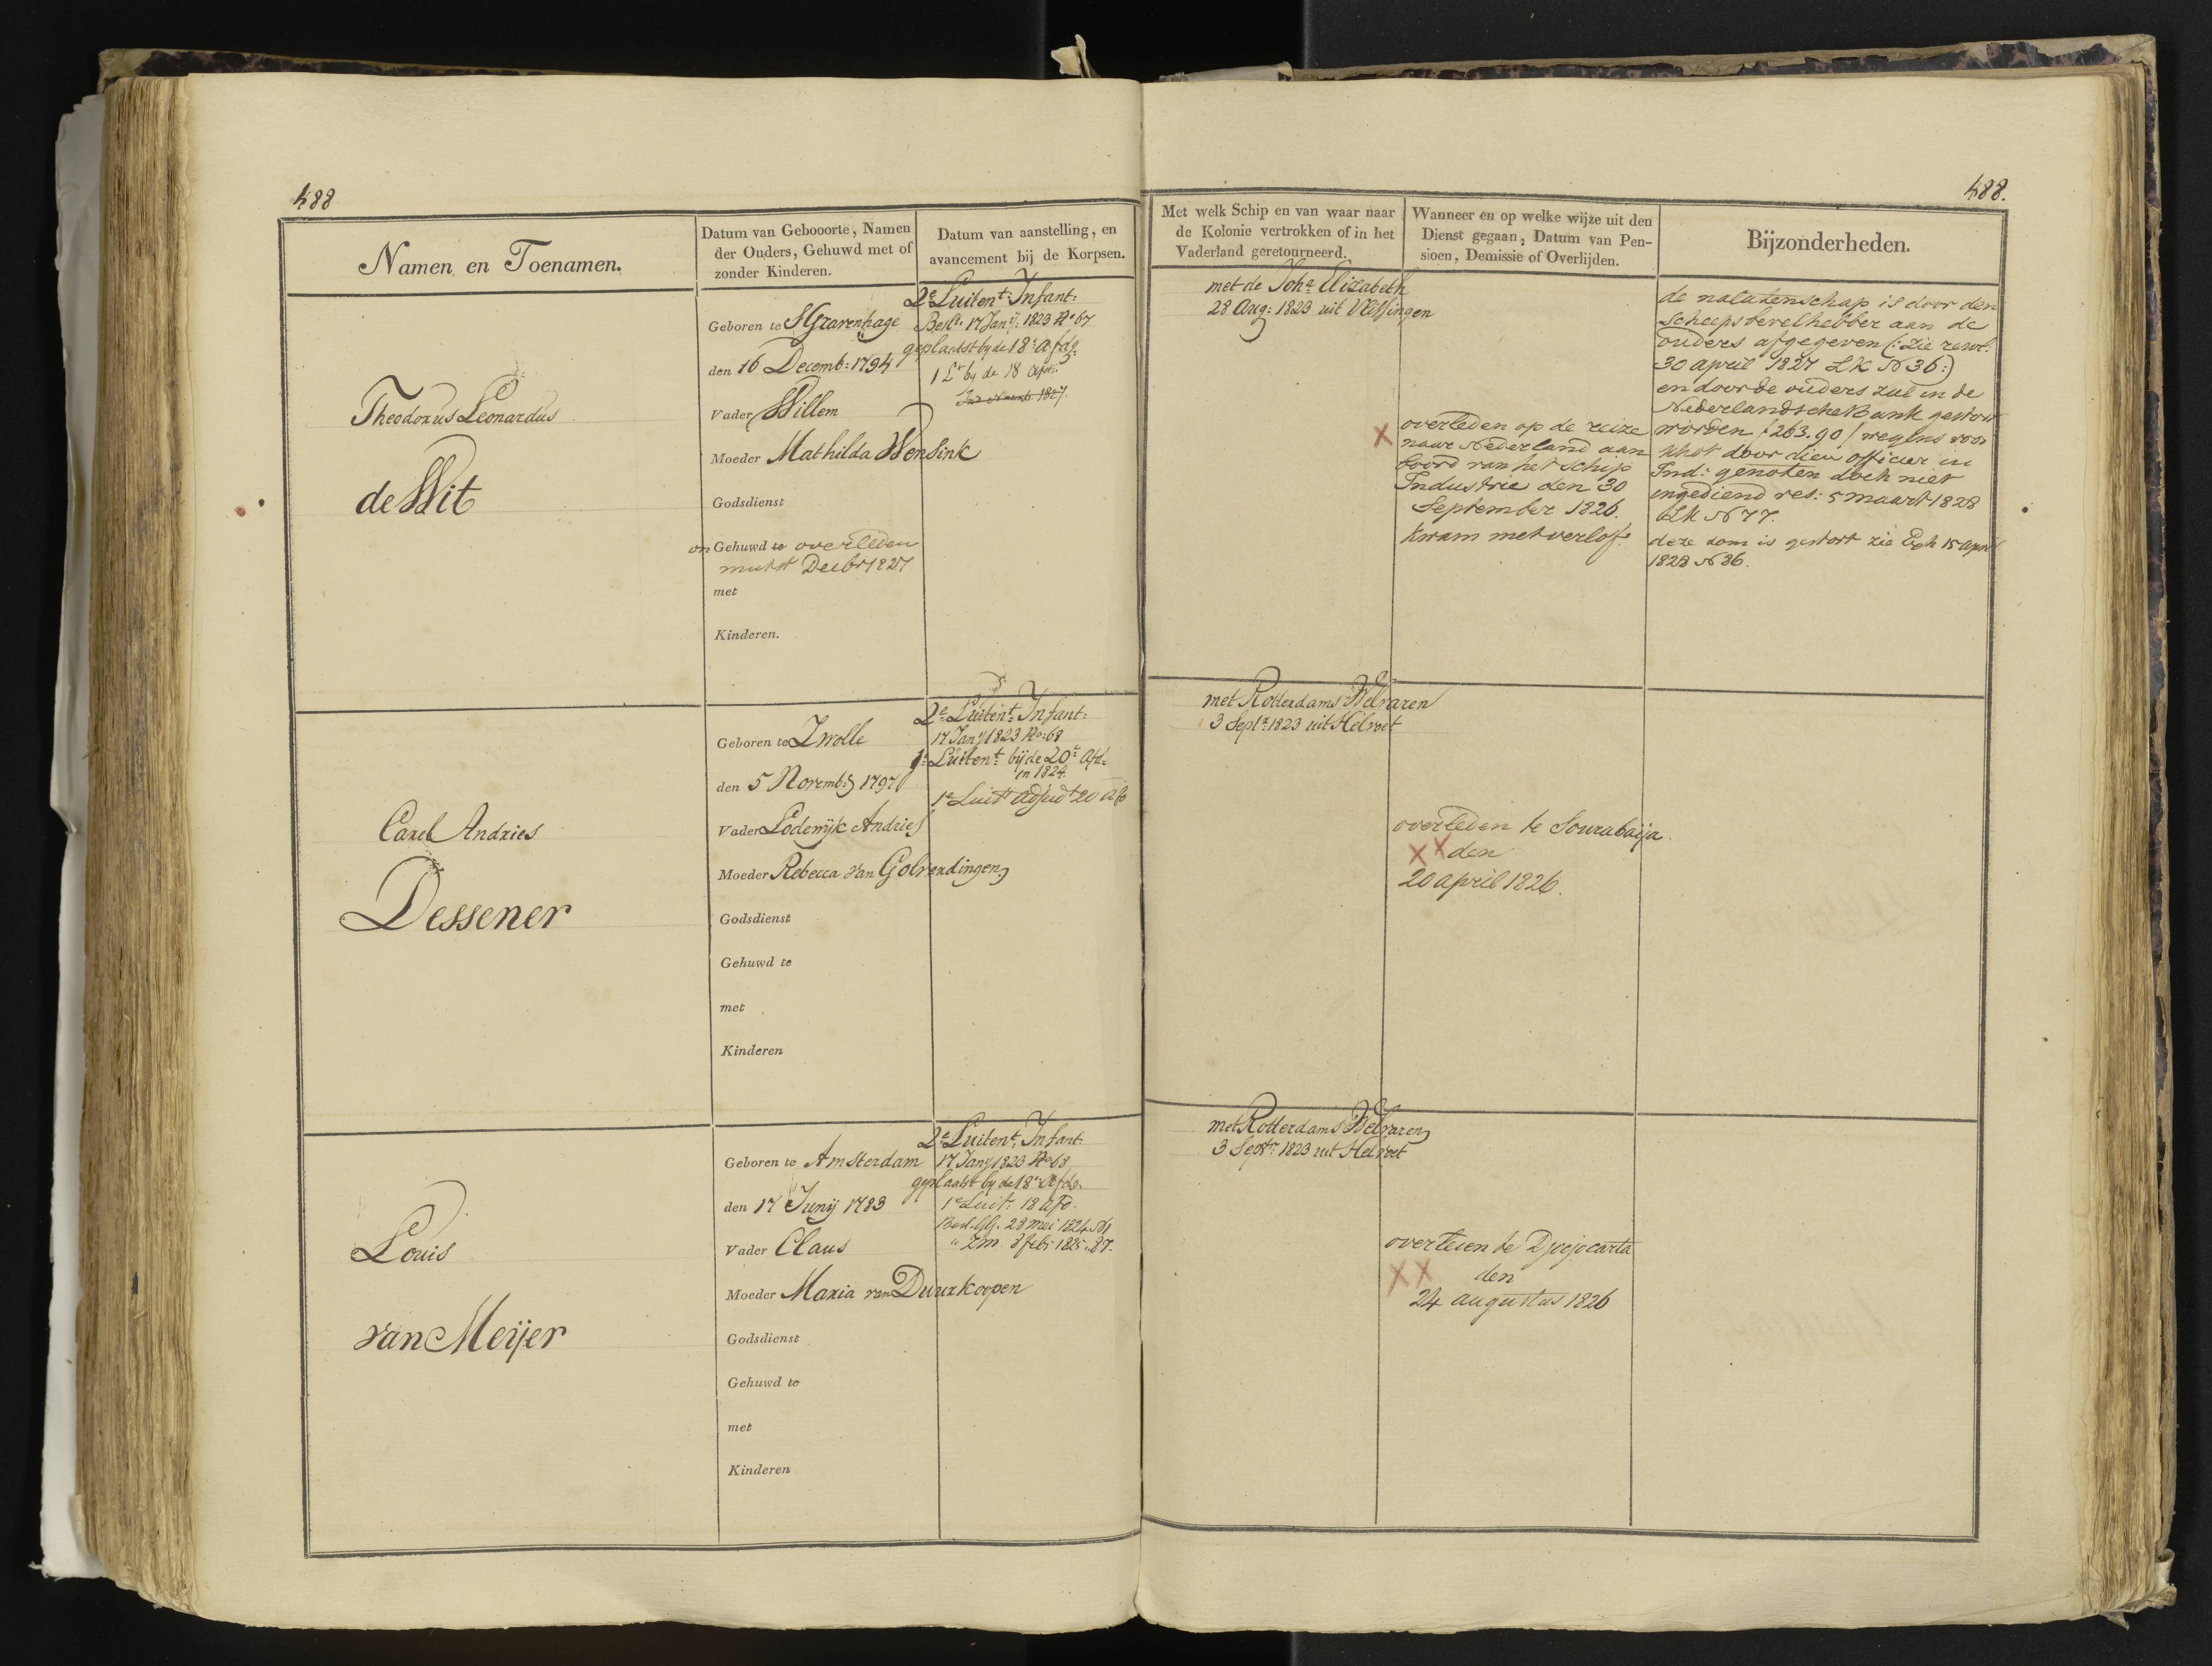 488
488.
Namen en Toenamen.
Datum van Gebooorte, Namen
der Ouders, Gehuwd met of
zonder Kinderen.
Datum van aanstelling, en
avancement bij de Korpsen.
Met welk Schip en van waar naar
de Kolonie vertrokken of in het
Vaderland geretourneerd.
Wanneer en op welke wijze uit den
Dienst gegaan, Datum van Pen-
sioen, Demissie of Overlijden.
Bijzonderheden.
Theodorus Leonardus
de Wit
Geboren te SGravenhage
den 16 Decemb: 1794
Vader Willem
Moeder Mathilda Wensink
Godsdienst
on Gehuwd te overleden
Decbr 1827
met
Kinderen.
2e Luitent: Infant:
Beslt. 17 Jany: 1823 No 67
geplaatst by de 18e afdg:
1 Lt by de 18 afd:
1827.
met de Joha Elizabeth
28 Aug: 1823 uit Vlissingen
X overleden op de reize
naar Nederland aan
boord van het schip
Industrie den 30
September 1826.
kwam met verlof.
de nalatenschap is door den
scheepsbevelhebber aan de
ouders afgegeven (: zie resol:
30 april 1827 LK No 36:)
en door de ouders zal in de
Nederlandsche Bank gestort
worden f 263.90 / wegens voor
schot door dien officier in
Ind: genoten doch niet
ingediend res: 5 maart 1828
LK No 77.
deze som is gestort zie Exh 15 april
1828 No 36.
Carel Andries
Dessener
Geboren te Zwolle
den 5 Novemb: 1797
Vader Lodewijk Andries
Moeder Rebecca van Golverdingen
Godsdienst
Gehuwd te
met
Kinderen
2e Luitent: Infant:
17 Jany 1823 No: 68
1e Luitent: bij de 20e Afd:
in 1824.
1e Luit adjudt 20 afd
met Rotterdams Welvaren
3 Septr: 1823 uit Helvoet
overleden te Sourabaija
X X den
20 april 1826.
Louis
van Meijer
Geboren te Amsterdam
den 17 Junij 1783
Vader Claus
Moeder Maria van Duurkoopen
Godsdienst
Gehuwd te
met
Kinderen
2e Luitent: Infant:
17 Jany 1823 No 68
geplaatst by de 18e Afde.
1e Luit: 18 afd.
Besl. GG. 28 mei 1824 No 1
" ZM. 8 feb: 1825 " 87.
met Rotterdams Welvaren
3 Septr: 1823 uit Helvoet
overleden te Djocjocarta
X X den
24 augustus 1826